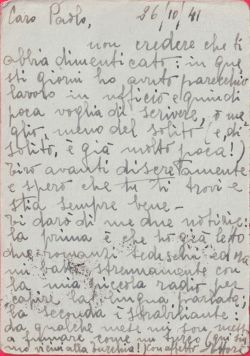 Caro Paolo, 26/10/41
non credere che ti
abbia dimenticato: in que
sti giorni ho avuto parecchio
lavoro in ufficio e quindi
poca voglia di scrivere, o me
glio, meno del solito (e di
solito, è già molto poca!)
Tiro avanti discretamente
e spero che tu ti trovi e
stia sempre bene -
Ti darò di me due notizie:
la prima è che ho già letto
due romanzi tedeschi ed
mi batto strenuamente con
la mia piccola radio per
capire la lingua parlata;
la seconda è strabiliante:
da qualche mese mi son messo
a fumare come un turco (qui